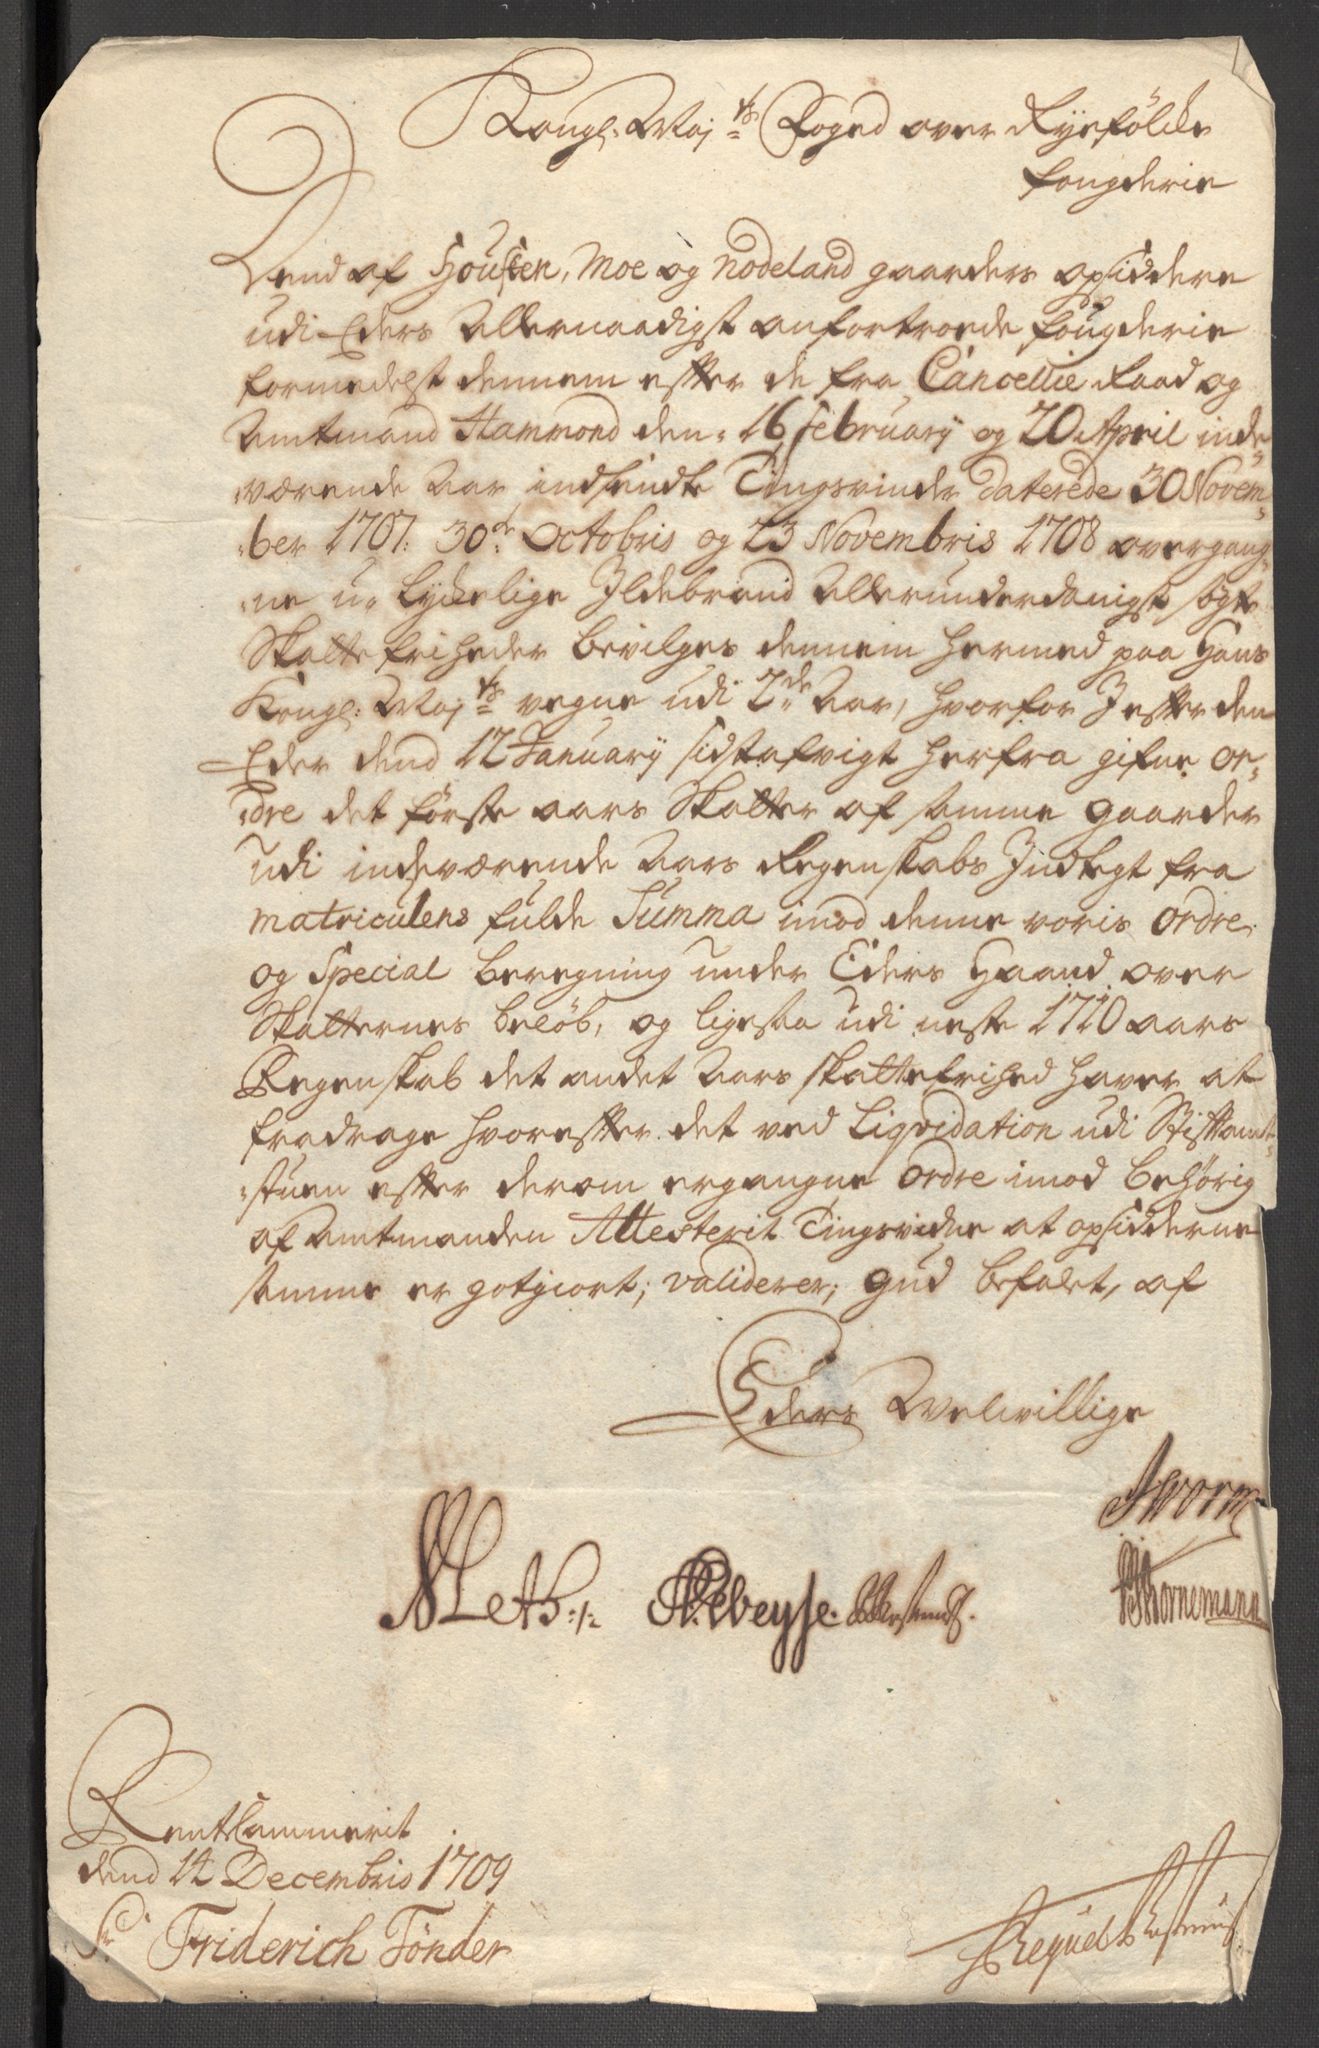 Kongl: May:ts Foged over Ryefölcke
fougderie
Hvend af Housken, Moe og Nodeland gaarders opsiddere
udi Eders Allernaadigst anfortroede fougderie
formedelst dennem efter de fra Cancellie Raad og
Amtmand Hammond den 16 February og 20 April inde-
værende Aar indsendte Tingsvinder daterede 30 Novem-
ber 1707. 30te Octobris og 23 Novembris 1708 overgang-
ne u-lyckelige Ildebrand Allerunderdanigst søgte
Skattefriheder bevilges dennem hermed paa Hans
Kongl: May:ts vegne udi 2de Aar, hvorfor I efter den
Eder dend 12 January sidstafvigt herfra gifne or-
dre det første aars Skatter af samme gaarder
udi indeværende Aars Regenskabs Indtegt fra
matriculens fulde Summa imod denne voris ordre
og Special beregning under Eders Haand over
Skatternes beløb, og ligesaa udi neste 1710 aars
Regenskab det andet Aars skattefrihed haver at
fradrage hvorefter det ved Liqvidation udi Stiftamt-
stuen efter derom ergangne ordre imod behörig
af Amtmanden Attesterit Tingsvidne at opsidderne
samme er gotgiort; validerer; Gud befalet, af
Eders Velvillige
JWorm
Meth:
Hornemann
RenteCammerit
dend 14 Decembris 1709
Sr Friderich Tönder